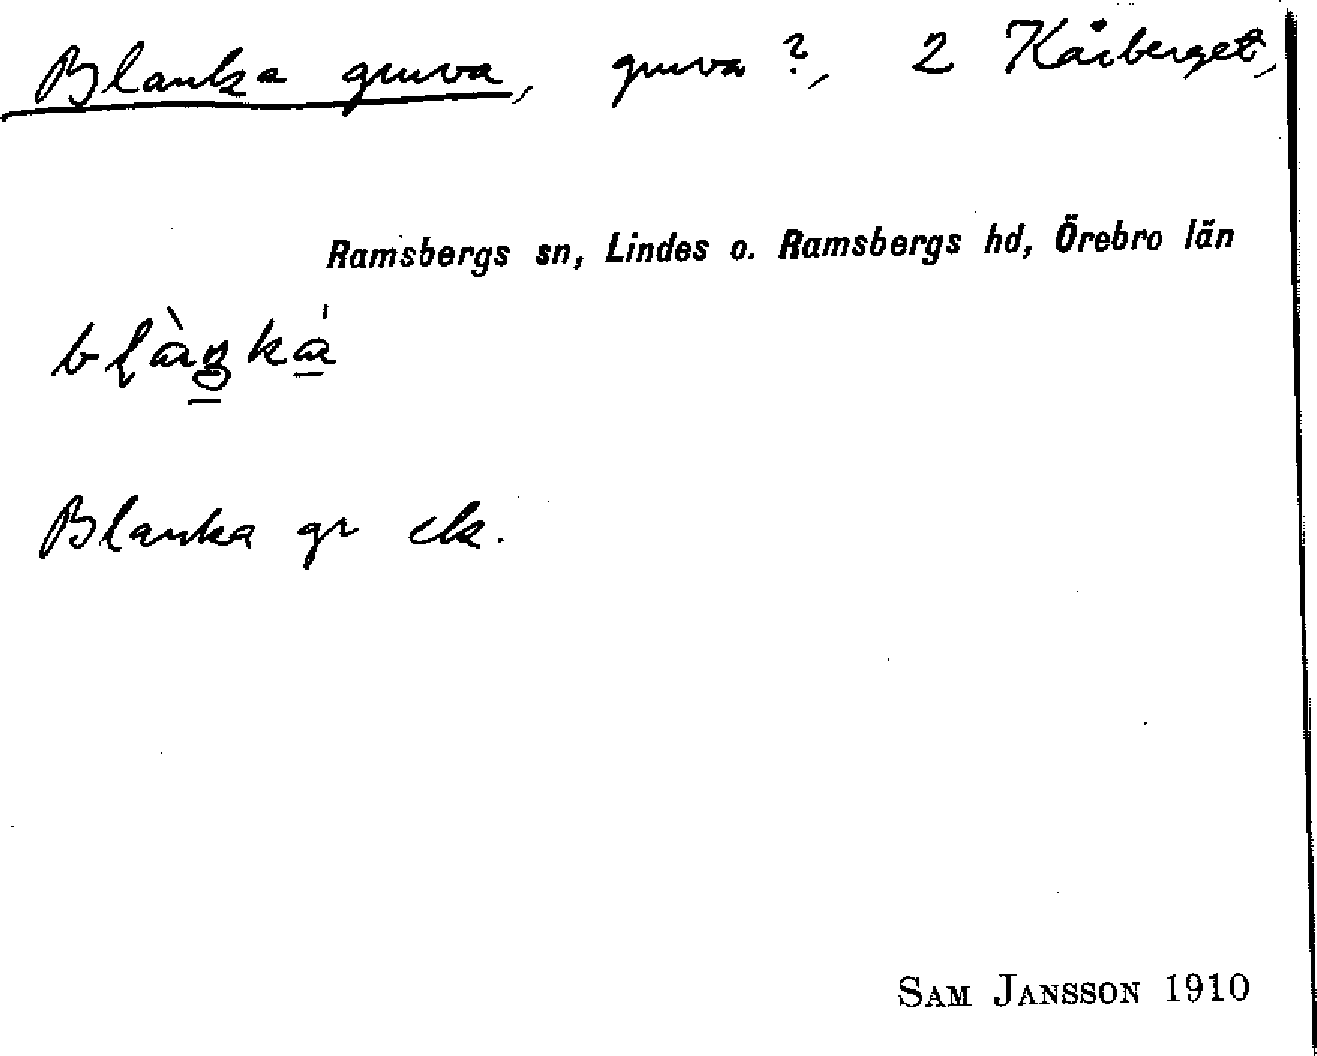 Blanka gruva, gruva ?, 2 Kåberget,
Ramsbergs sn, Lindes o. Ramsbergs hd, Örebro län
Blanka gr ek.
SAM JANSSON 1910